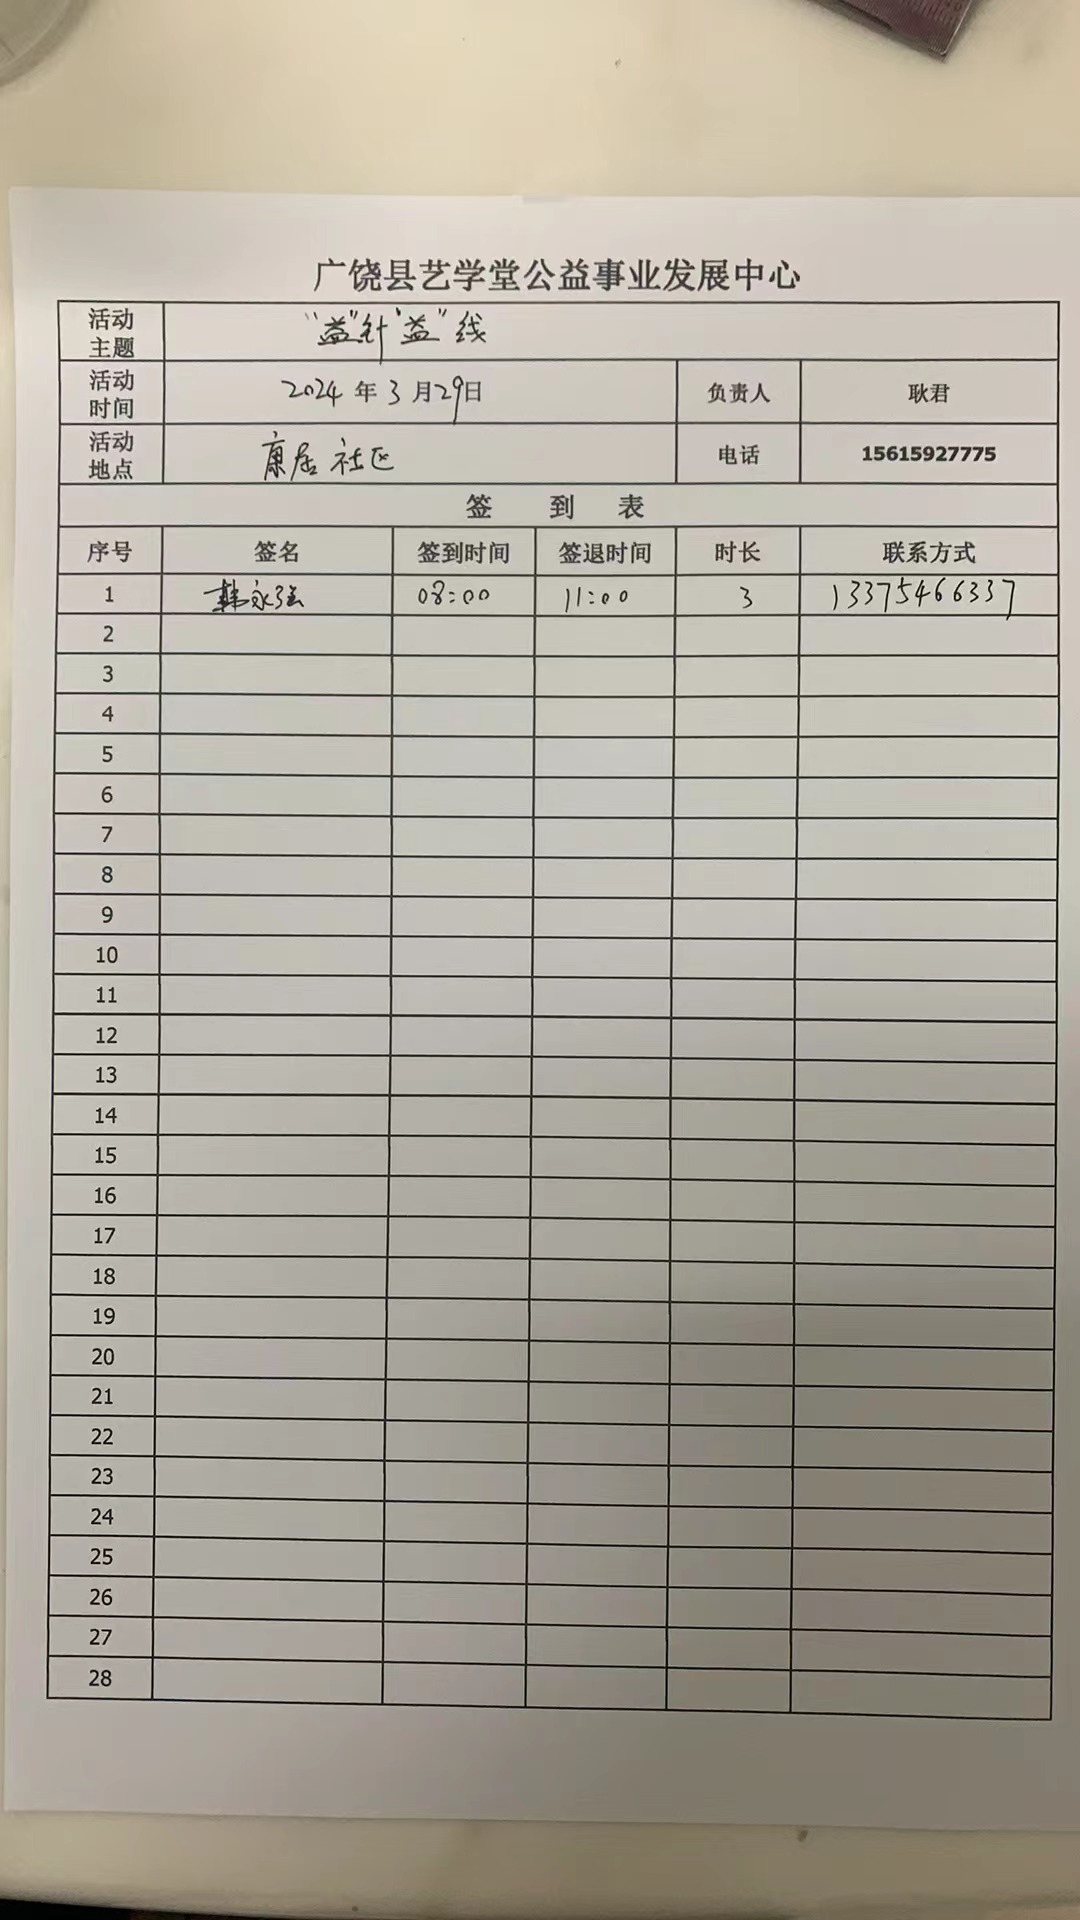 广饶县艺学堂公益事业发展中心
活动主题 “益”针“益”线
活动时间 2024年3月29日 负责人 耿君
活动地点 康居社区 电话 15615927775
签 到 表
序号 签名 签到时间 签退时间 时长 联系方式
1 韩永强 08:00 11:00 3 13375466337
2
3
4
5
6
7
8
9
10
11
12
13
14
15
16
17
18
19
20
21
22
23
24
25
26
27
28